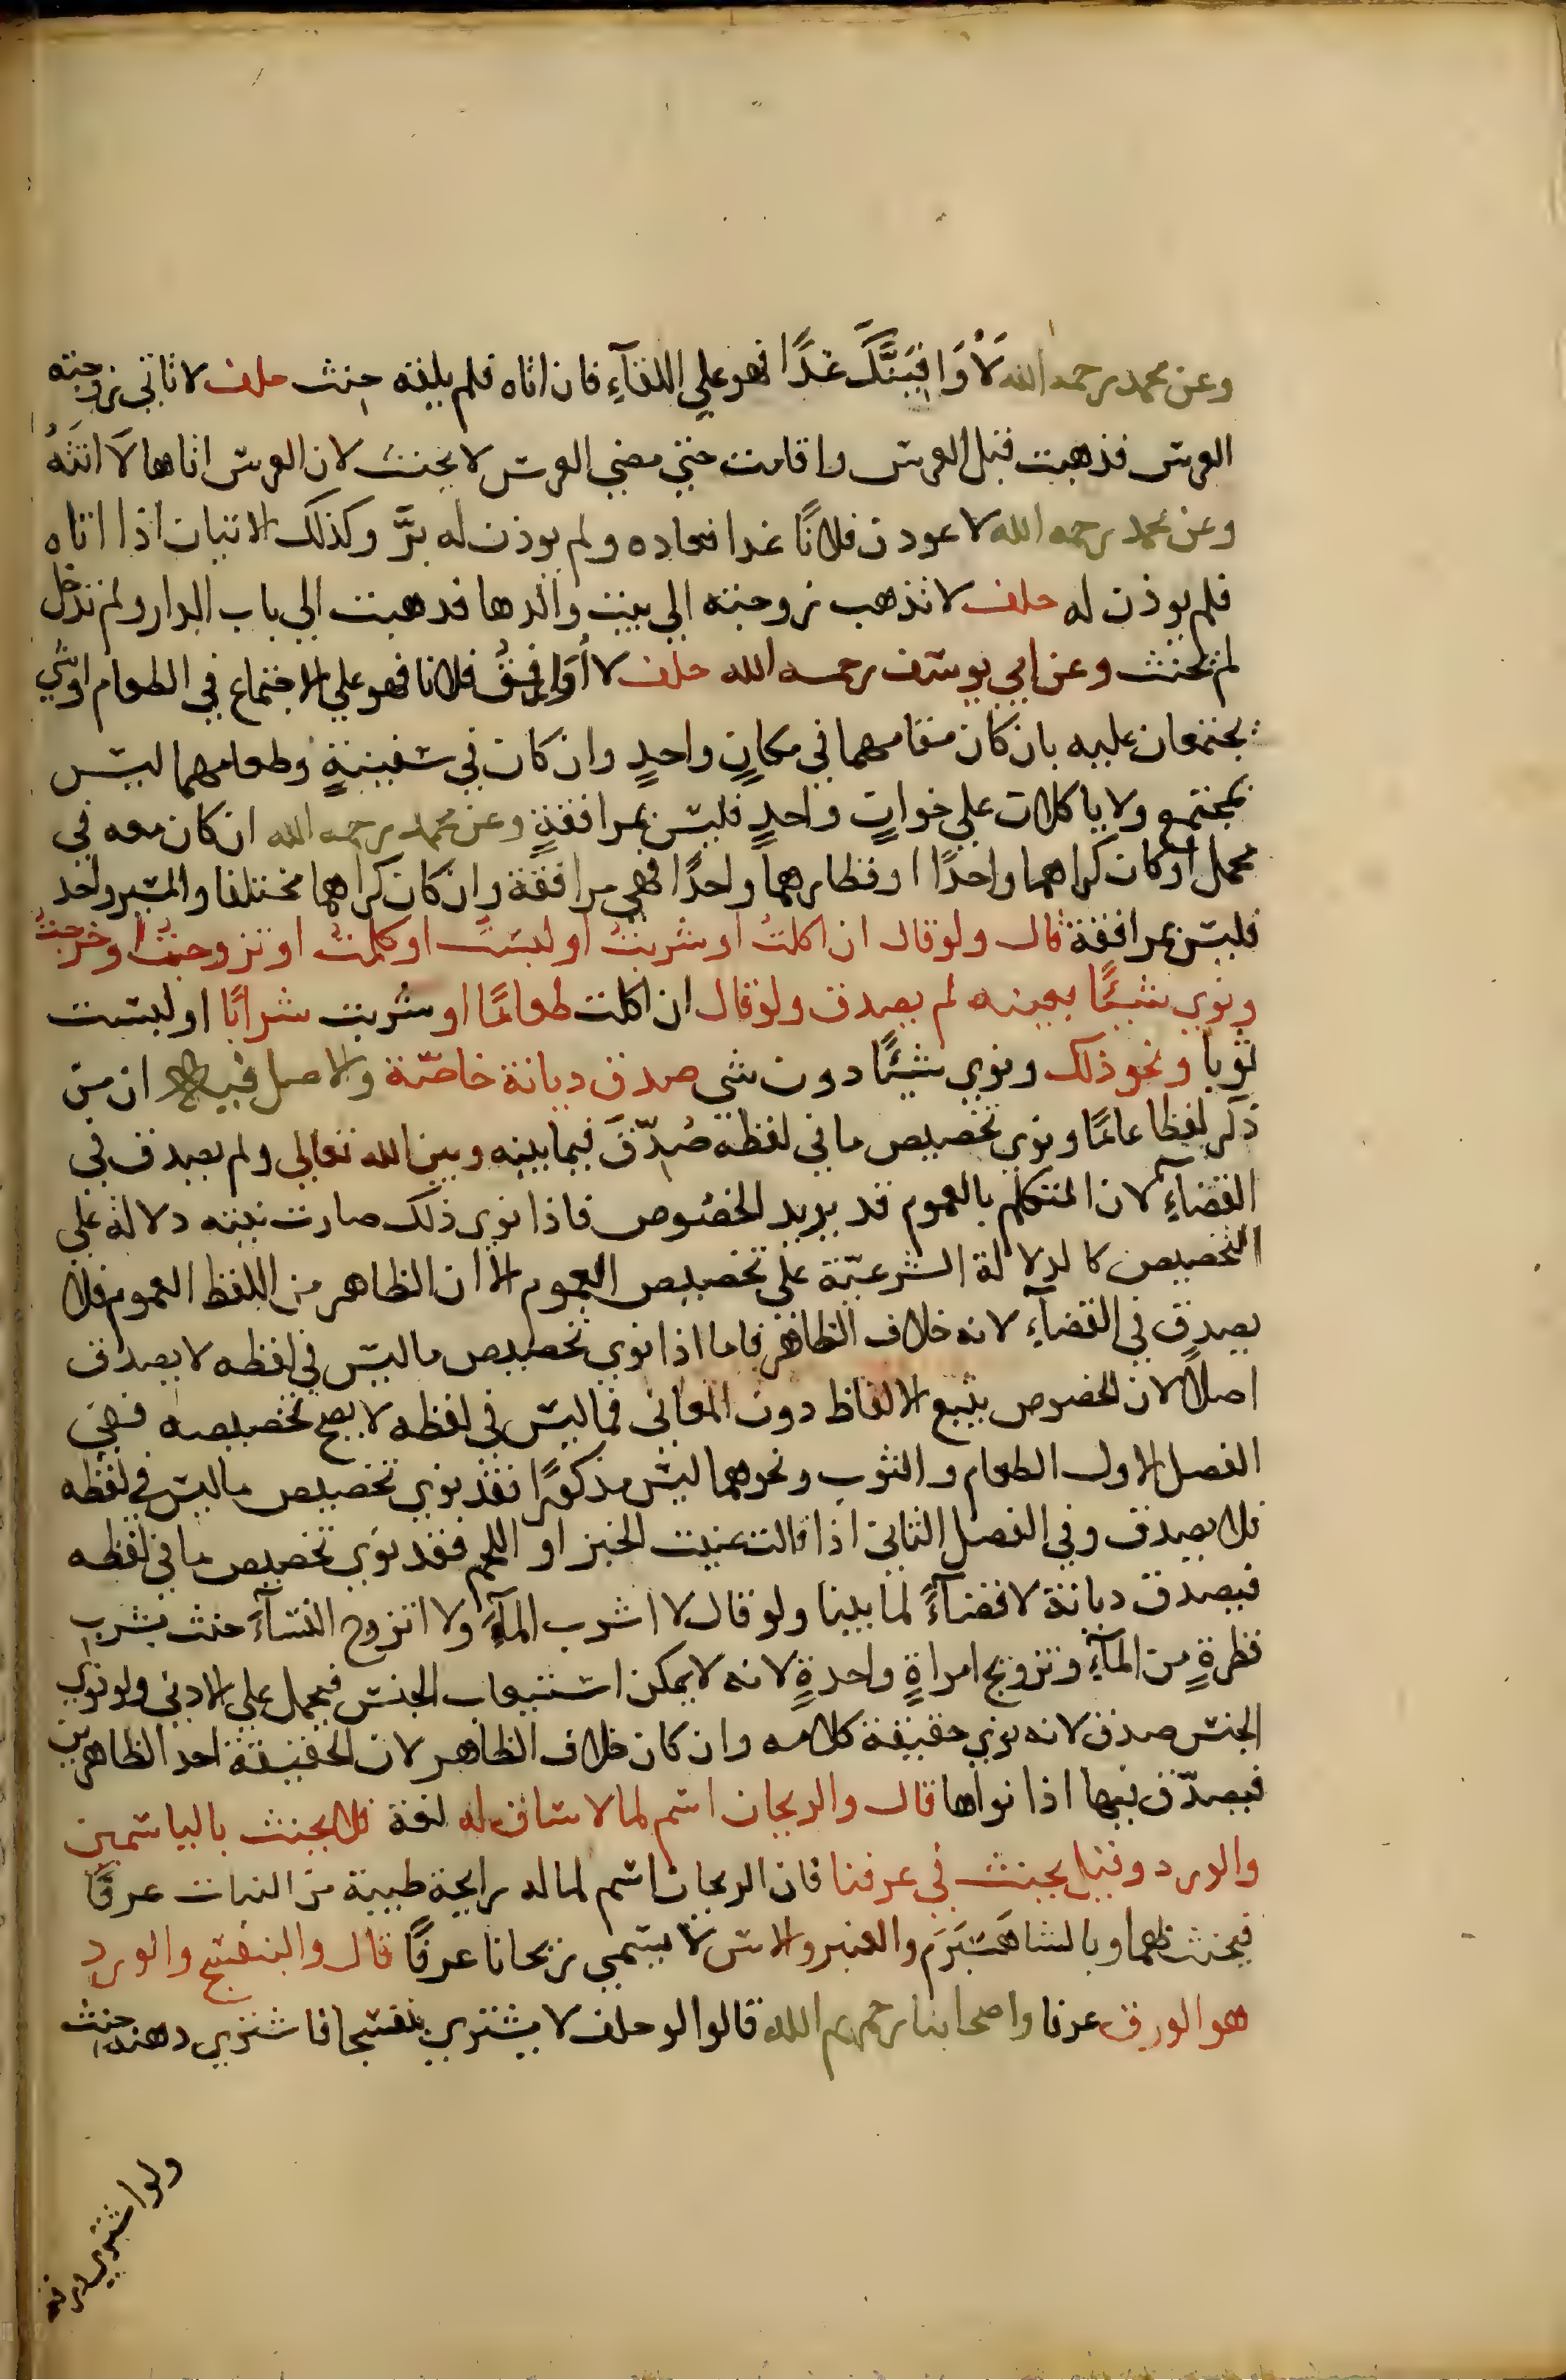 وعن محمد رحمه الله لَأُوَافِيَنَّكَ غَدًا فهو علي اللقآءِ فان اتاه فلم يلقه حنث حلف لا تاتي زوجته
العرس فذهبت قبل العرس واقامت حتي مضي العرس لا يحنث لان العرس اتاها لَا اتَتْهُ
وعن محمد رحمه الله لاعودن فلانًا غدا فعاده ولم يوذن له برَّ وكذلك الاتيان اذا اتاه
فلم يوذن له حلف لا تذهب زوجته الي بيت والدها فذهبت الي باب الدار ولم تدخل
لم تحنث وعن ابي يوسف رحمه الله حلف لا اُوَافِقُ فلانا فهو علي الاجتماع في الطعام او شي
يجتمعان عليه بان كان مقامهما في مكانٍ واحدٍ وان كان في سفينةٍ وطعامهما ليس
بمجتمع ولا ياكلان علي خوانٍ واحدٍ فليس بمرافقةٍ وعن محمد رحمه الله ان كان معه في
محمل او كان كراهما واحدًا او قطارهما واحدًا فهي مرافقة وان كان كراهما مختلفا والمسير واحد
فليس بمرافقة قال ولو قال ان اكلتُ او شربتُ او لبستُ او كلمتُ او تزوجتُ او خرجتُ
ونوي شيئًا بعينه لم يصدق ولو قال ان اكلت طعامًا او شربت شرابًا او لبست
ثوبا ونحو ذلك ونوي شيئًا دون شي صدق ديانة خاصّة والاصل فيه ان من
ذكر لفظا عامًا ونوي تخصيص ما في لفظه صُدّقَ فيما بينه وبين الله تعالي ولم يصدق في
القضآءِ لان المتكلم بالعموم قد يريد الخصوص فاذا نوي ذلك صارت نيته دلالة علي
التخصيص كالدلالة الشرعيّة علي تخصيص العموم الا ان الظاهر من اللفظ العموم فلا
يصدق في القضآءِ لانه خلاف الظاهر فاما اذا نوي تخصيص ما ليس في لفظه لا يصدق
اصلًا لان الخصوص يتبع الالفاظ دون المعاني فما ليس في لفظه لا يصح تخصيصه ففي
الفصل الاول الطعام والثوب ونحوهما ليس مذكورًا فقد نوي تخصيص ما ليس في لفظه
فلا يصدق وفي الفصل الثاني اذا قالت عنيت الخبز او اللحم فقد نوي تخصيص ما في لفظه
فيصدق ديانة لا قضآءً لما بينا ولو قال لا اشرب المآءَ ولا اتزوج النسآءَ حنث بشرب
قطرةٍ من المآءِ وتزويج امراةٍ واحدةٍ لانه لا يمكن استيعاب الجنس فيحمل علي الادني ولو نوي
الجنس صدق لانه نوي حقيقة كلامه وان كان خلاف الظاهر لان الحقيقة احد الظاهرين
فيصدّق فيها اذا نواها قال والريحان اسم لما لا ساق له لغة فلا يحنث بالياسمين
والورد وقيل يحنث في عرفنا فان الريحان اسم لما له رايحة طيبة من النبات عرفًا
فيحنث بهما وبالشاهَسْبَرَم والعنبر والاس لا يسمي ريحانا عرفًا قال والبنفسج والورد
هو الورق عرفا واصحابنا رحمهم الله قالوا لو حلف لا يشتري بنفسجا فاشتري دهنه حنث
ولو اشتري ورقه